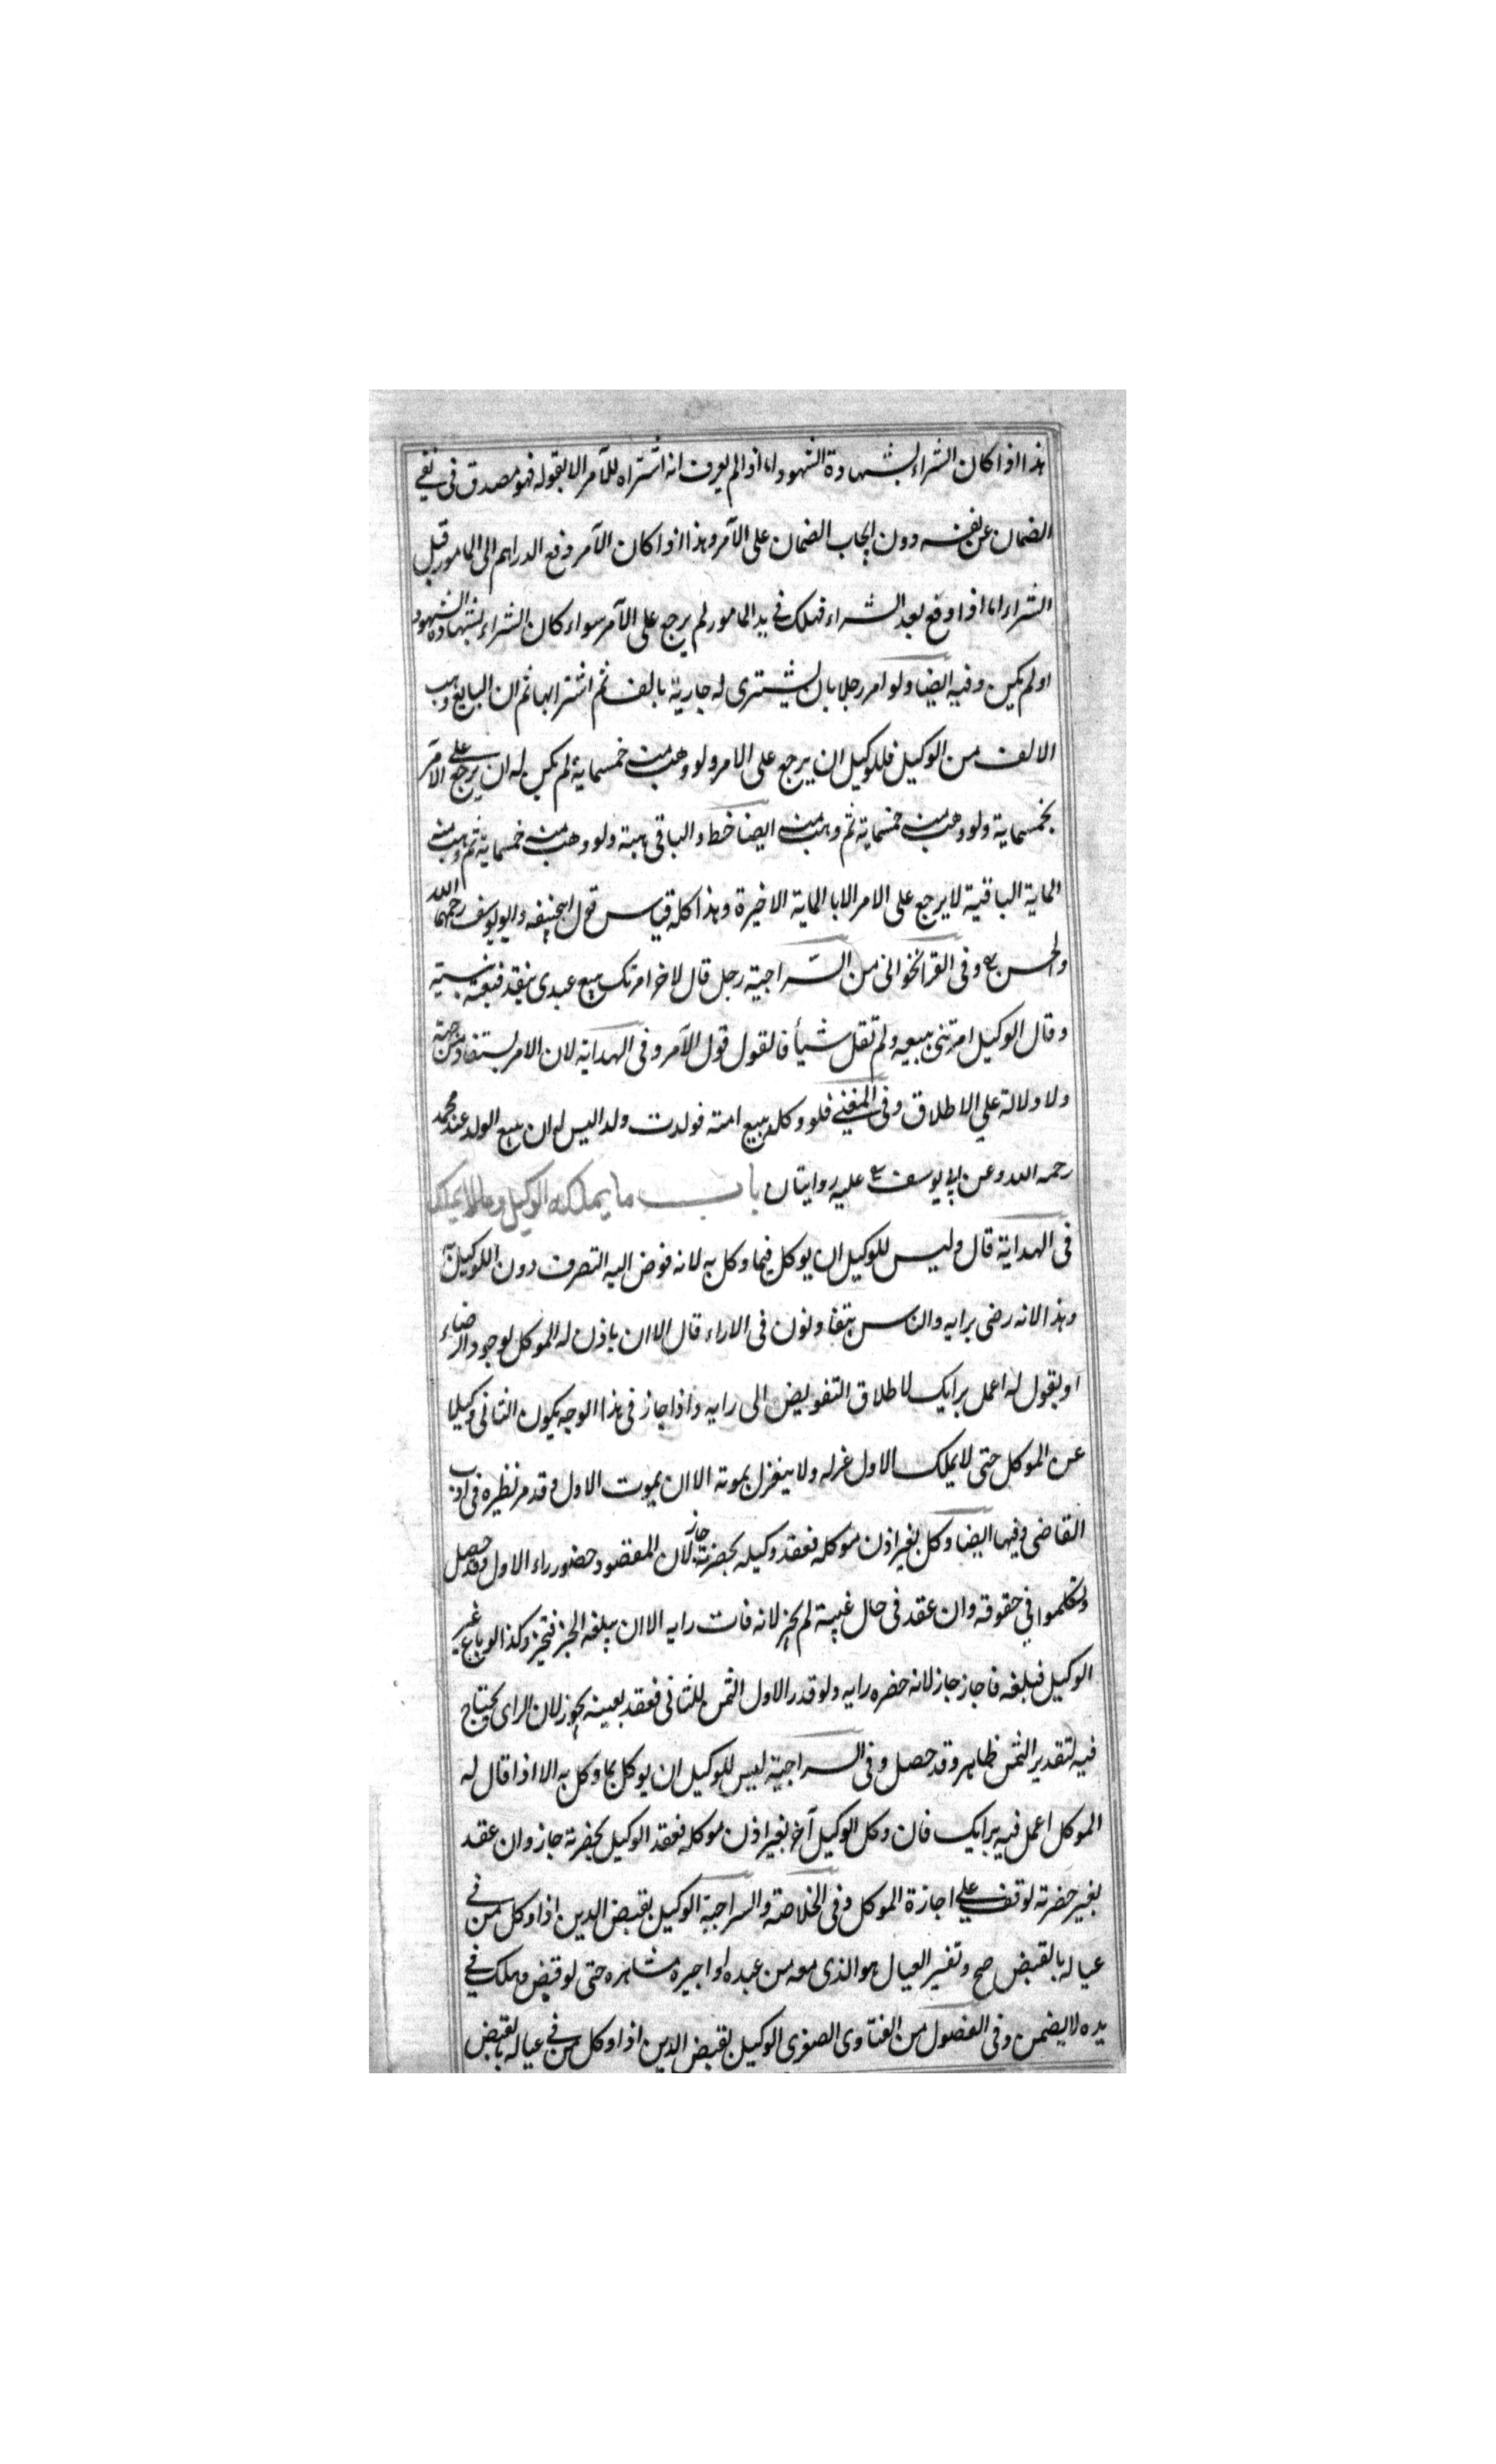 هذا اذا كان الشراء بشهادة الشهود اما اذا لم يعرف انه اشتراه للآمر الا بقوله فهو مصدق فى نفى
الضمان عن نفسه دون ايجاب الضمان على الآمر وهذا اذا كان الآمر دفع الدراهم الى المامور قبل
الشراء اما اذا دفع بعد الشراء فهلك فى يد المامور لم يرجع على الآمر سواء كان الشراء بشهادة الشهود
او لم يكن وفيه ايضا ولو امر رجلا بان يشترى له جارية بالف ثم اشتراها ثم ان البايع وهب
الالف من الوكيل فللوكيل ان يرجع على الامر ولو وهب منه خمسماية لم يكن له ان يرجع على الآمر
بخمسماية ولو وهب منه خمسماية ثم وهب منه ايضا خط والباقى هبة ولو وهب منه خمسماية ثم وهب منه
الماية الباقية لا يرجع على الامر الا بالماية الاخيرة وهذا كله قياس قول ابيحنيفه وابويوسف رحمهما الله
والحسن وفى القراخوانى من السراجية رجل قال لاخر امرتك ببيع عبدى بنقد فبعته بنسية
وقال الوكيل امرتنى ببيعه ولم تقل شيأ فالقول قول الآمر وفى الهداية لان الامر يستفاد من جهته
ولا دلالة على الاطلاق وفى المغنى فلو وكله ببيع امته فولدت ولدا ليس له ان يبيع الولد عند محمد
رحمه الله وعن ابى يوسف عليه روايتان باب ما يملكه الوكيل وما لا يملك
فى الهداية قال وليس للوكيل ان يوكل فيما وكل به لانه فوض اليه التصرف دون التوكيل به
وهذا لانه رضى برايه والناس يتفاوتون فى الاراء قال الا ان ياذن له الموكل لوجود الرضاء
او يقول له اعمل برايك لاطلاق التفويض الى رايه واذا جاز فى هذا الوجه يكون الثانى وكيلا
عن الموكل حتى لا يملك الاول عزله ولا ينعزل بموته الا ان يموت الاول وقد مر نظيره فى ادب
القاضى وفيها ايضا وكل بغير اذن موكله فعقد وكيله بحضرته جاز لان المقصود حضور راء الاول وقد حصل
وتكلموا فى حقوقه وان عقد فى حال غيبته لم يجز لانه فات رايه الا ان يبلغه الخبر فتجيز وكذا لو باع غير
الوكيل فبلغه فاجاز جاز لانه حضره رايه ولو قدر الاول الثمن للثانى فعقد بغيبته يجوز لان الراى يحتاج
فيه لتقدير الثمن ظاهر وقد حصل وفى السراجية ليس للوكيل ان يوكل بما وكل به الا اذا قال له
الموكل اعمل فيه برايك فان وكل الوكيل آخر بغير اذن موكله فعقد الوكيل بحضرته جاز وان عقد
بغير حضرته توقف على اجازة الموكل وفى الخلاصة والسراجية الوكيل بقبض الدين اذا وكل من فى
عياله بالقبض صح وتفسير العيال هو الذى معه من عبده او اجيره مشاهره حتى لو قبض وهلك فى
يده لا يضمن وفى الفصول من الفتاوى الصغرى الوكيل بقبض الدين اذا وكل من فى عياله بقبض